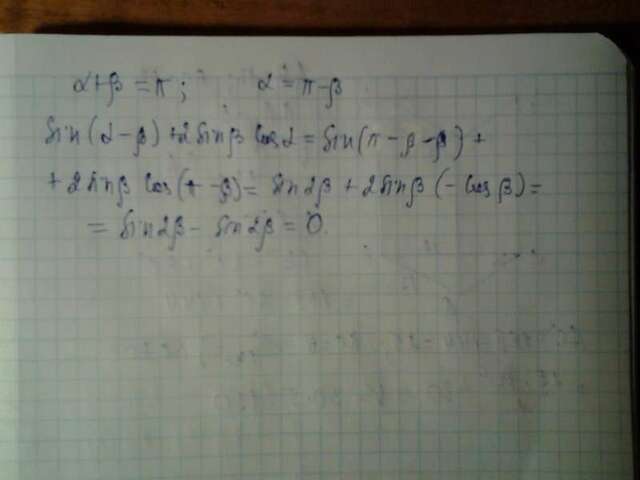 α+β = π; α = π-β
sin(α-β) + 2 sinβ cosα = sin(π-β-β) +
+ 2 sinβ cos(π-β) = sin2β + 2 sinβ (-cosβ) =
= sin2β - sin2β = 0.